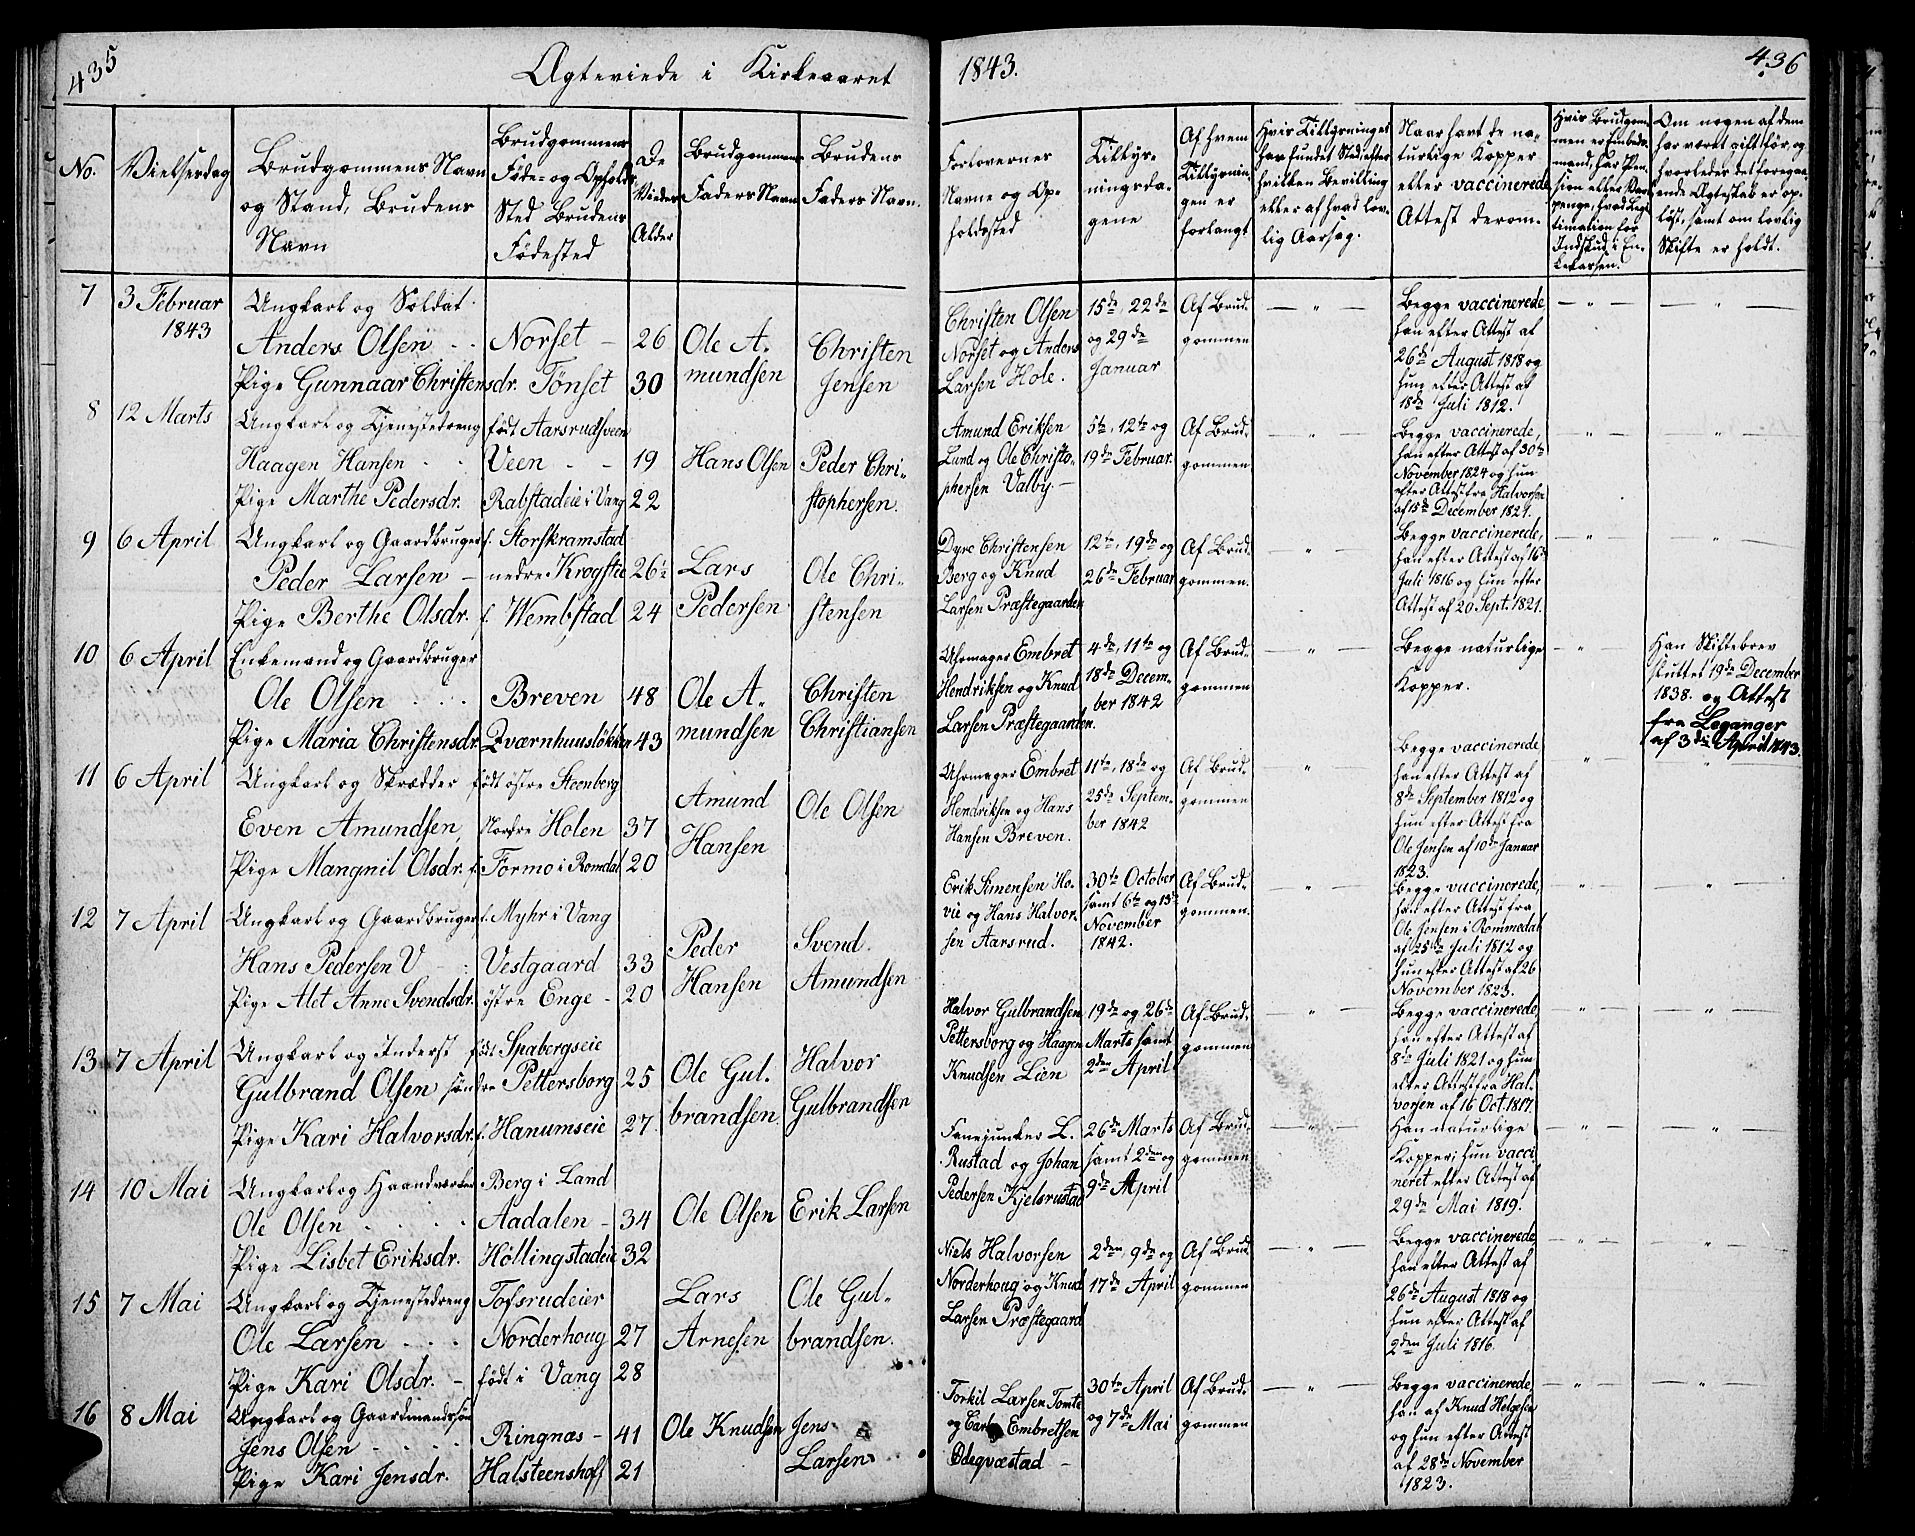 435
Ægteviede i Kirkeaaret
1843.
436
No.
Vielsesdag
Brudgommens Navn
og Stand, Brudens
Navn
Brudgommens
Føde- og Opholds
Sted Brudens
Fødested
De
Viedes
Alder
Brudgommens
Faders Navn
Brudens
Faders Navn.
Forlovernes
Navne og Op-
holdssted
Tillys-
ningsda-
gene
Af hvem
Tillysnin-
gen er
forlangt
Hvis Tillysninger
har fundet Sted efter
hvilken Bevilling
eller af hvad lov-
lig Aarsag.
Naar havt de na-
turlige Kopper
eller vaccinerede
Attest derom.
Hvis Brudgom-
men er Embeds-
mand, har Pen-
sion eller Var-
penge, hvad Legi-
timation for
Indskud i En-
kekassen.
Om nogen af dem
har været gift før, og
hvorledes det foregaa-
ende Ægteskab er op-
løst, samt om lovlig
Skifte er holdt.
7
3 Februar
1843
Ungkarl og Soldat
Anders Olsen
Pige Gunnaar Christensdr.
Norset
Tönset
26
30
Ole A-
mundsen
Christen
Jensen
Christen Olsen
Norset og Anders
Larsen Hole.
15de, 22de
og 29de
Januar
Af Brud-
gommen
Begge vaccinerede
han efter Attest af
26de August 1818 og
hun efter Attest af
18de Juli 1812.
8
12 Marts
Ungkarl og Tjenestedreng
Haagen Hansen
Pige Marthe Pedersdr.
født Aarsrudsveen
Veen
Rabstadeie i Vang
19
22
Hans Olsen
Peder Chri-
stophersen.
Amund Eriksen
Lund og Ole Christo-
phersen Valby.
5te, 12te og
19de Februar.
Af Brud-
gommen
Begge vaccinerede,
han efter Attest af 30te
November 1824 og hun
efter Attest fra Halvorsen
af 15de December 1821.
9
6 April
Ungkarl og Gaardbruger
Peder Larsen
Pige Berthe Olsdr.
f. Storskramstad
nedre Krogstie
f. Wembstad
26½
24
Lars
Pedersen
Ole Chri-
stensen
Dyre Christensen
Berg og Knud
Larsen Præstegaarden
12te, 19de og
26de Februar
Af Brud-
gommen.
Begge vaccinerede,
han efter Attest af 16de
Juli 1816 og hun efter
Attest af 20 Sept. 1821.
10
6 April
Enkemand og Gaardbruger
Ole Olsen
Pige Maria Christensdr.
Breven
Qværnhuusløkken
48
43
Ole A-
mundsen
Christen
Christiansen
Uhrmager Embret
Hendriksen og Knud
Larsen Præstegaarden.
4de, 11te og
18de Decem-
ber 1842
Af Brud-
gommen
Begge naturlige
Kopper.
Han Skiftebrev
sluttet 19de December
1838. og Attest
fra Leganger
af 3de April 1843.
11
6 April
Ungkarl og Skrædder
Even Amundsen,
Pige Mangnil Olsdr.
født östre Steenberg
Nordre Holen
f. Formo i Romdal
37
20
Amund
Hansen
Ole Olsen
Uhrmager Embret
Hendriksen og Hans
Hansen Breven.
11te, 18de og
25de Septem-
ber 1842
Af Brud-
gommen
Begge vaccinerede
han efter Attest af
8de September 1812 og
hun efter Attest fra
Ole Jensen af 10de Januar
1823.
12
7 April
Ungkarl og Gaardbruger
Hans Pedersen V
Pige Alet Anne Svendsdr.
f. Myhr i Vang
Vestgaard
östre Enge
33
20
Peder
Hansen
Svend
Amundsen
Erik Simensen Ho-
vie og Hans Halvor-
sen Aarsrud.
30te October
samt 6te og 13de
November
1842.
Af Brud-
gommen.
Begge vaccinerede,
han efter Attest fra
Ole Jensen i Rommedal
af 25de Juli 1812 og
hun efter Attest af 26
November 1823.
13
7 April
Ungkarl og Inderst
Gulbrand Olsen
Pige Kari Halvorsdr.
født Spabergseie
søndre Pettersborg
f. Hanumseie
25
27.
Ole Gul-
brandsen
Halvor
Gulbrandsen
Halvor Gulbrandsen
Pettersborg og Haagen
Knudsen Lien
19de og 26de
Marts samt
2den April
Af Brud-
gommen
Begge vaccinerede,
han efter Attest af
8de Juli 1821 og hun
efter Attest fra Hal-
vorsen af 16 Oct. 1817.
14
10 Mai
Ungkarl og Haandværker
Ole Olsen
Pige Lisbet Eriksdr.
Berg i Land
Aadalen
Høllingstadeie
34
32
Ole Olsen
Erik Larsen
Fanejunker L.
Rustad og Johan
Pedersen Kjelsrustad
26de Marts
samt 2den og
9de April
Af Brud-
gommen
Han naturlige
Kopper; hun vacci-
neret efter Attest af
29de Mai 1819.
15
7 Mai
Ungkarl og Tjenestedreng
Ole Larsen
Pige Kari Olsdr.
Tofsrudeier
Norderhoug
født i Vang
27
28
Lars
Arnesen
Ole Gul-
brandsen.
Niels Halvorsen
Norderhoug og Knud
Larsen Præstegaard
2den, 9de og
17de April
Af Brud-
gommen
Begge vaccinerede
han efter Attest af
26de August 1818 og
hun efter Attest af
2den Juli 1816.
16
8 Mai
Ungkarl og Gaardmandssøn
Jens Olsen
Pige Kari Jensdr.
Ringnæs
Halsteenshoff
41
21
Ole Knudsen
Jens
Larsen
Torkil Larsen Tomte
og Embretsen
Ødeqvæstad
30te April
og 7de Mai
Af Brud-
gommen
Begge vaccinerede,
han af Knud Helgesen
og hun efter Attest
af 28de November
1823.